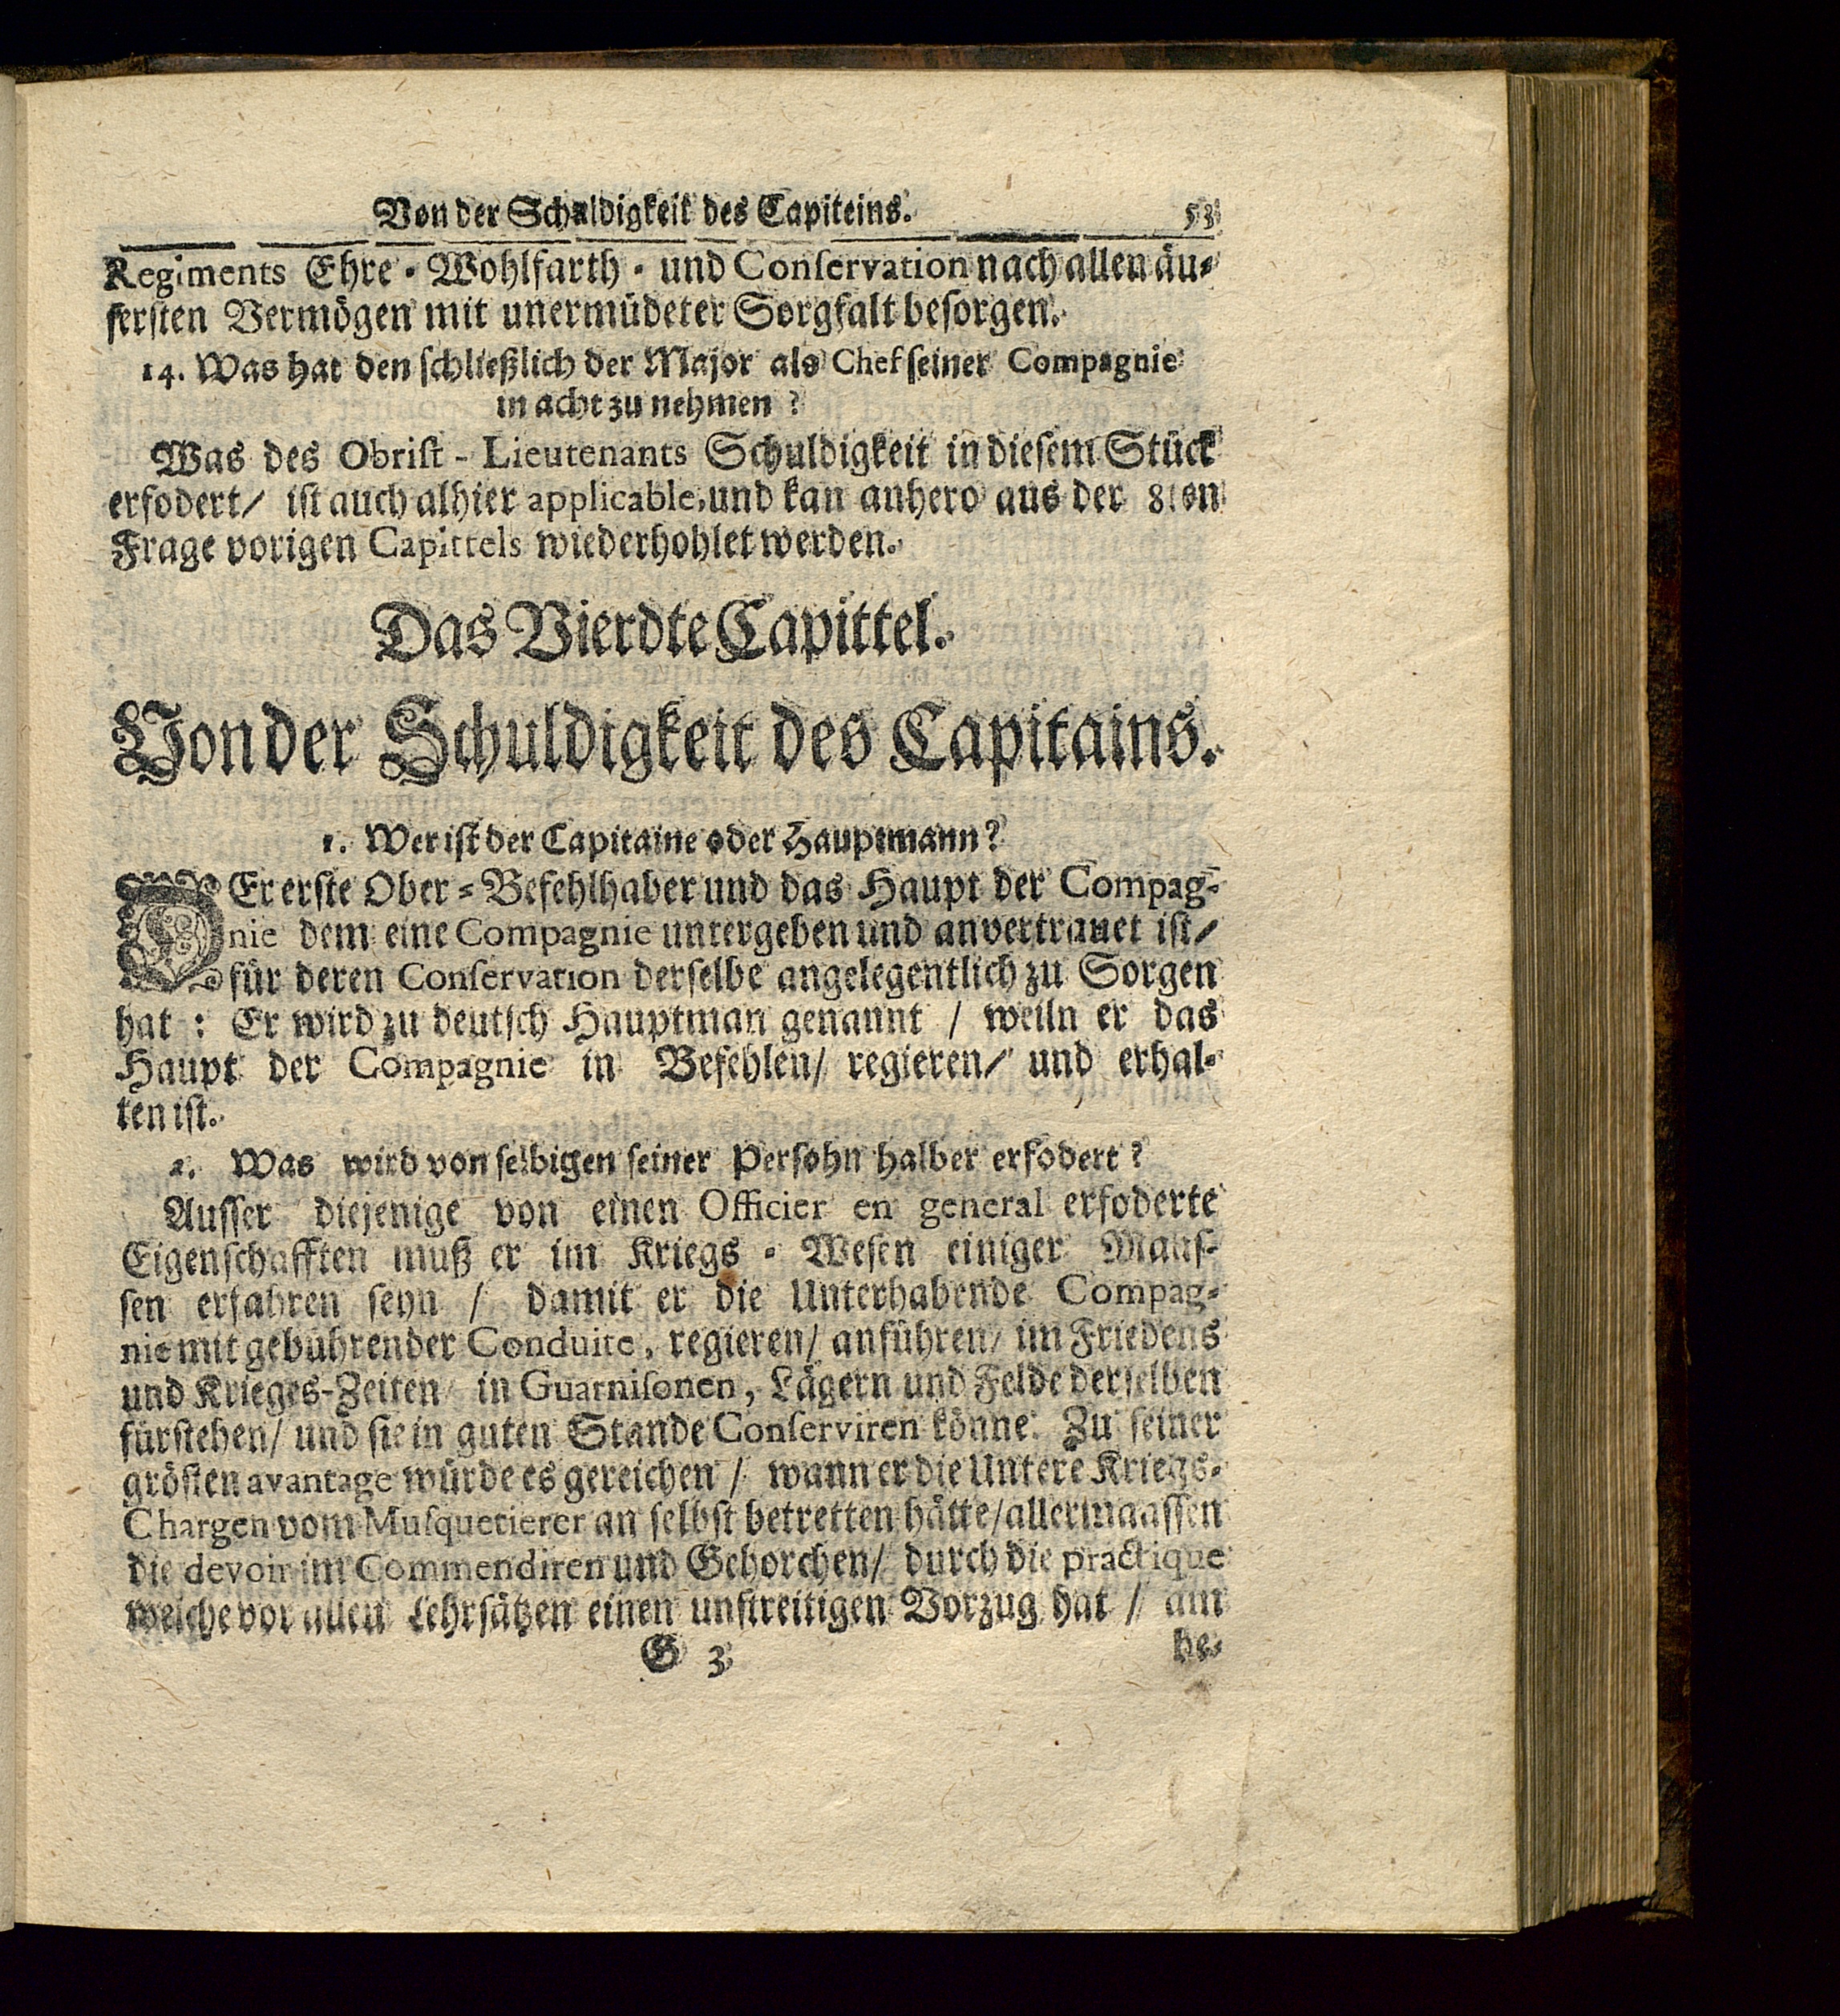 Von der Schuldigkeit des Capiteins. 53
Regiments Ehre- Wohlfarth- und Conservation nach allen äu-
sersten Vermögen mit unermüdeter Sorgfalt besorgen.
14. Was hat den schließlich der Major als Chef seiner Compagnie
in acht zu nehmen?
Was des Obrist-Lieutenants Schuldigkeit in diesem Stück
erfodert/ ist auch alhier applicable, und kan anhero aus der 8ten
Frage vorigen Capittels wiederhohlet werden.
Das Vierdte Capittel.
Von der Schuldigkeit des Capitains.
1. Wer ist der Capitaine oder Hauptmann?
DEr erste Ober-Befehlhaber und das Haupt der Compag-
nie dem eine Compagnie untergeben und anvertrauet ist/
für deren Conservation derselbe angelegentlich zu Sorgen
hat: Er wird zu deutsch Hauptman genannt / weiln er das
Haupt der Compagnie in Befehlen/ regieren/ und erhal-
ten ist.
2. Was wird von selbigen seiner Persohn halber erfodert?
Ausser diejenige von einen Officier en general erfoderte
Eigenschafften muß er im Kriegs-Wesen einiger Mans-
sen erfahren seyn / damit er die Unterhabende Compag-
nie mit gebührender Conduite, regieren/ anführen/ im Friedens
und Krieges-Zeiten/ in Guarnisonen, Lägern und Felde derselben
fürstehen/ und sie in guten Stande Conserviren könne. Zu seiner
grösten avantage würde es gereichen / wann er die Untere Kriegs-
Chargen vom Musquetierer an selbst betretten hätte/ allermaassen
die devoir im Commendiren und Gehorchen/ durch die practique
welche vor allen Lehrsätzen einen unstreitigen Vorzug hat / am
G 3 be-